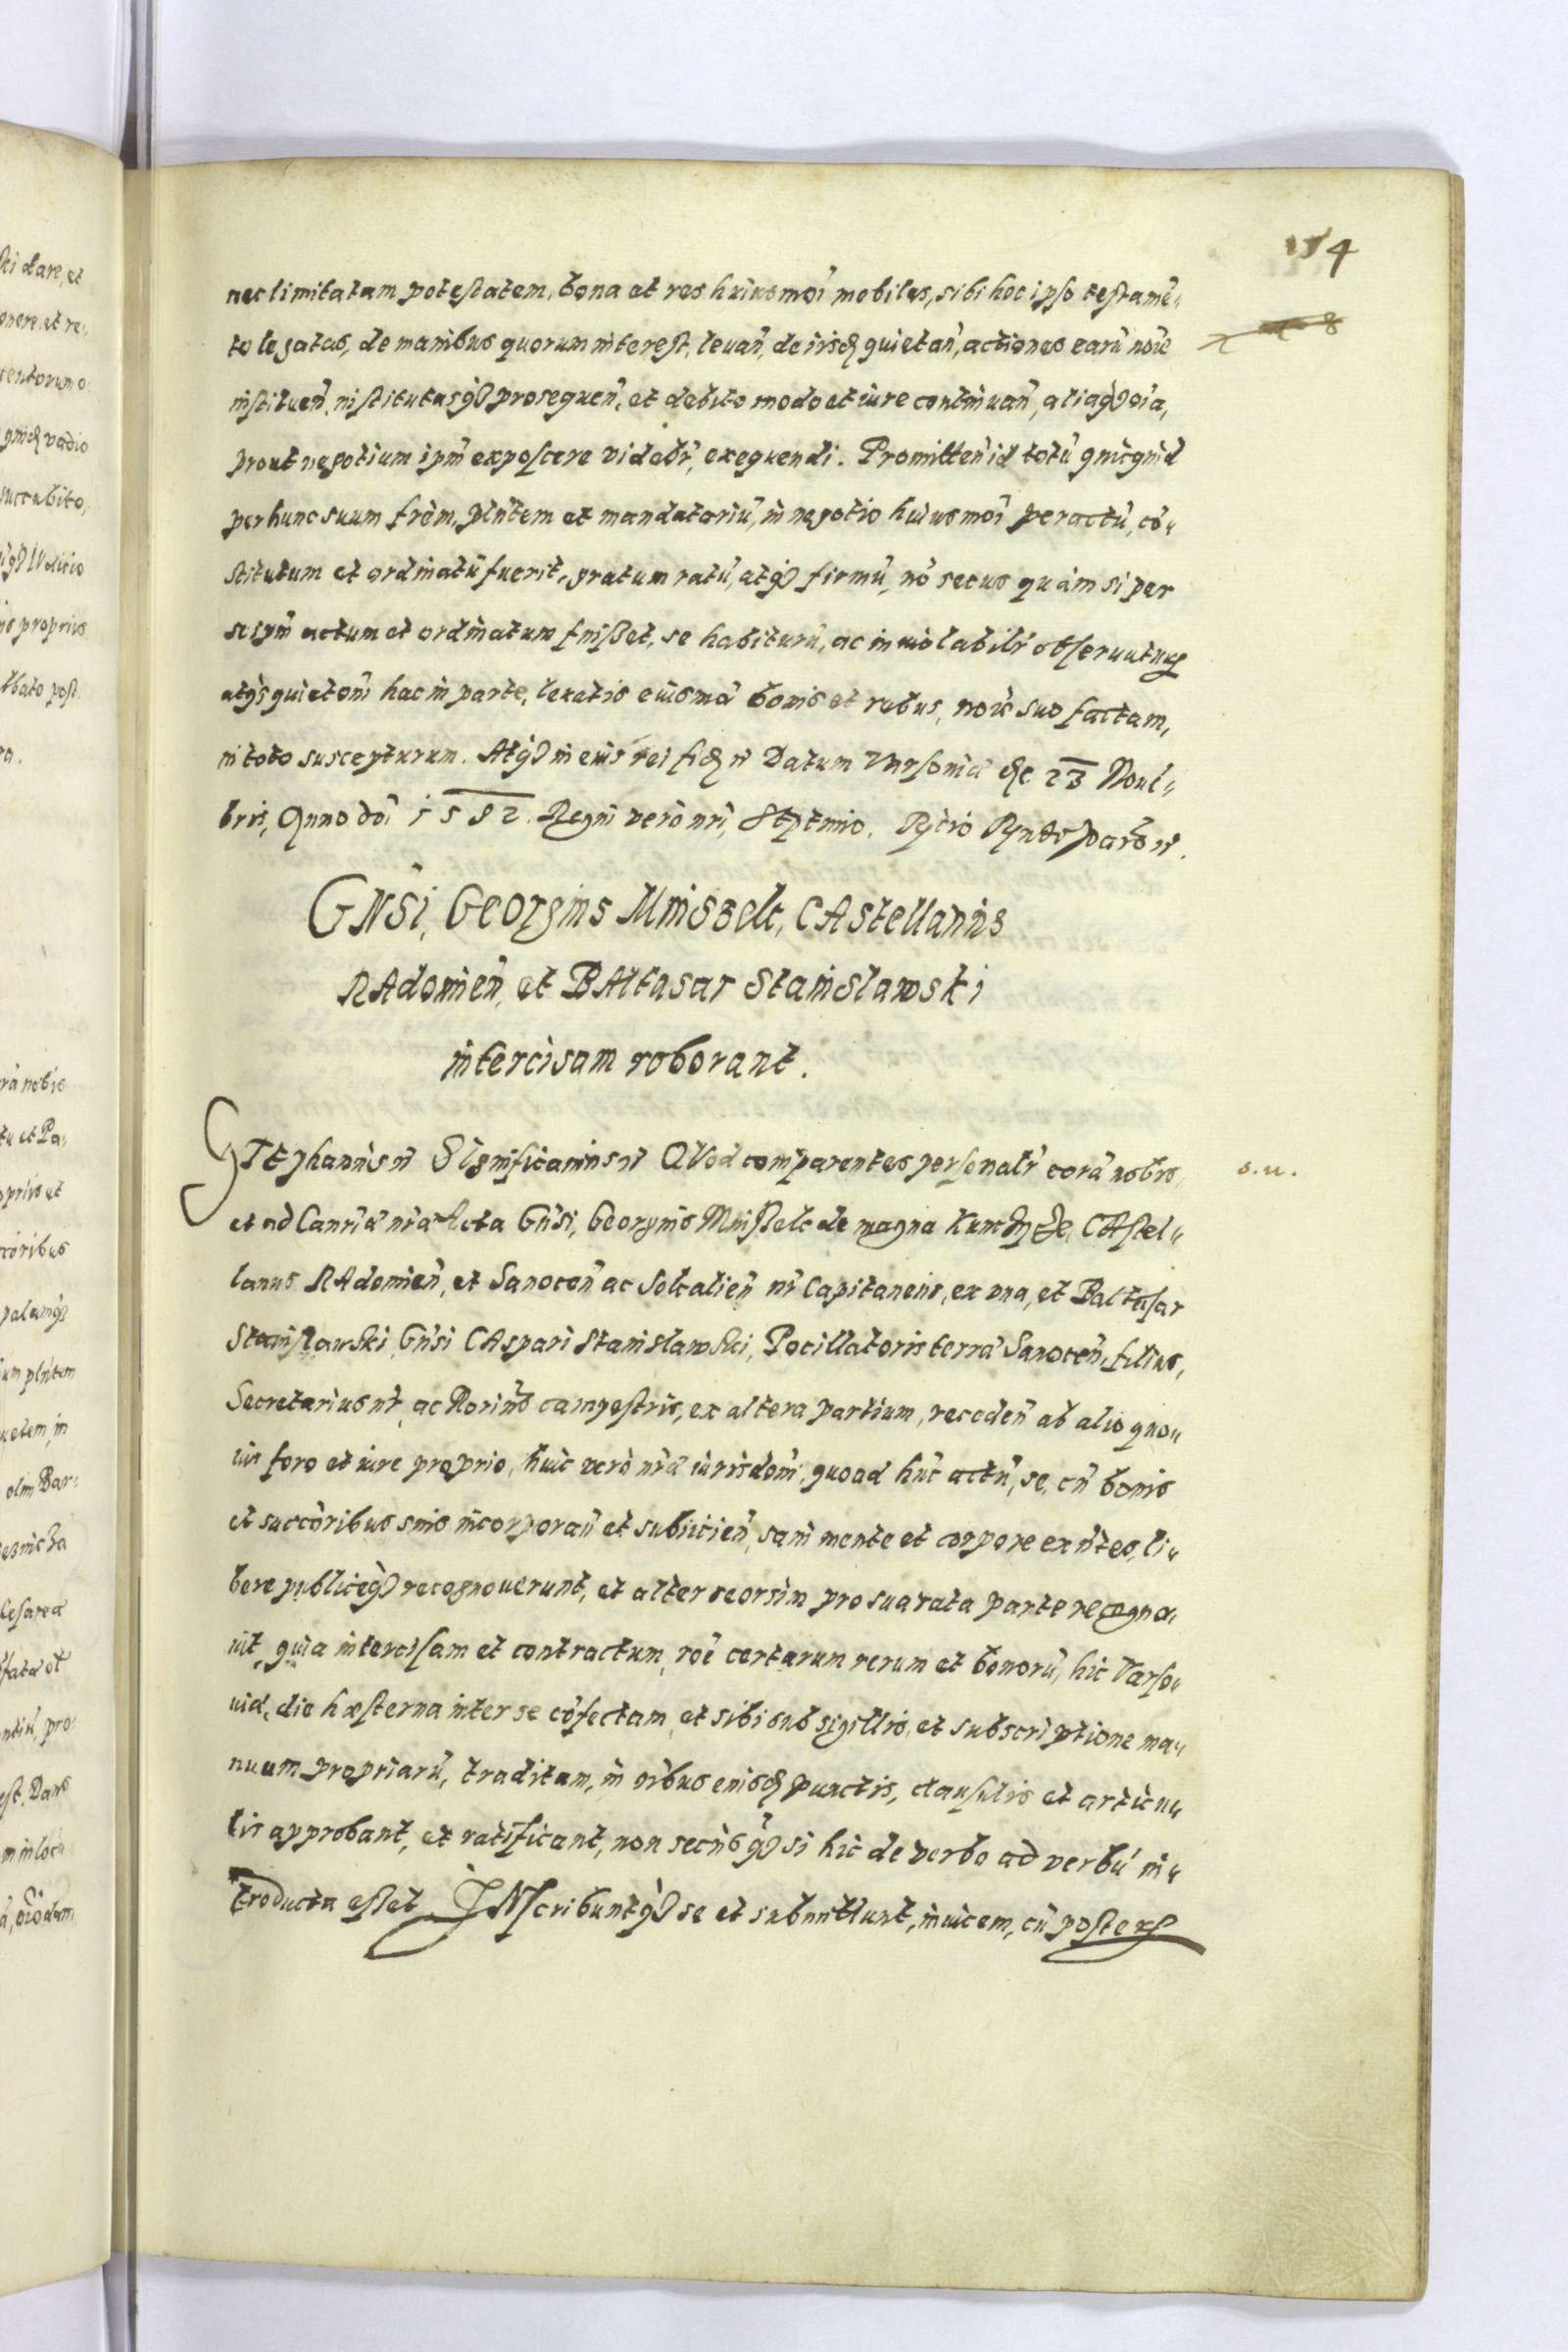 154
nec limitatam potestatem, bona et res huiusmoi mobiles, sibi hoc ipso testame„
to legatas, de manibus quorum interest, levan̄, de iisq̃ quietan̄, actiones earū noīe
instituen̄, institutasq̃ prosequen̄, et debito modo et iure continuan̄, aliaq̃ oīa,
prout negotium ipm̄ exposcere videbr̄, exequendi. Promitten̄ id totū quicquid
per hunc suum frēm, pln̄tem et mandatoriū, in negotio huiusmoī peractū, cō„
stitutum et ordinatū fuerit, gratum ratū, atq̃ firmū, nō secus quàm si per
se ipm̄ actum et ordinatum fuisset, se habiturū, ac inviolabilr̄ observaturū
atq̃ quietōm hac in parte, levatis eiusmōi bonis et rebus, noīe suo factam,
in toto suscepturum. Atq̃ in eius rei fidē Datum Varsoviæ die 23 Noue„
bris, Anno dōi 1582. Regni verò nri, Septimo.
GNSi, Georgius Mniszek, CAstellanus
RAdomien̄, et BAltasar Stanislawski
intercisam roborant.
STEphanus Significamus QVod comparentes personalr̄ corā nobis, s. u.
et ad Canr̄iæ nr̄æ Acta Gn̄si, Georgius Mnißek de magna Kunczycze, CAstel„
lanus RAdomien̄, et Sanocen̄ ac Socalien̄ nr̄ Capitaneus, ex una, et Baltasar
Stanislawski Gn̄si CAspari Stanislawski, Pocillatoris terræ Sanocen̄, filius,
Secretarius nr̄, ac Notarius campestris, ex altera partium, receden̄ ab alio quo„
vis foro et iure proprio, huic verò nr̄æ iurisdōni, quoad hūc actū, se, cū bonis
et succōribus suis incorporan̄ et subiicien̄, sani mente et corpore exn̄tes, li„
bere publiceq̃ recognoverunt, et alter seorsim pro sua rata parte recogno„
vit, quia intercisam et contractum, rōe certarum rerum et bonorū, hic Varso„
viæ, die hæsterna inter se cōfectam, et sibi sub sigillis, et subscriptione ma„
nuum propriarū, traditam, in oībus eiusq̃ punctis, clausulis et articu„
lis approbant, et ratificant, non secūs q̃ si hic de verbo ad verbū in„
troducta esset. INscribuntq̃ se et submittunt, invicem, cū posteris